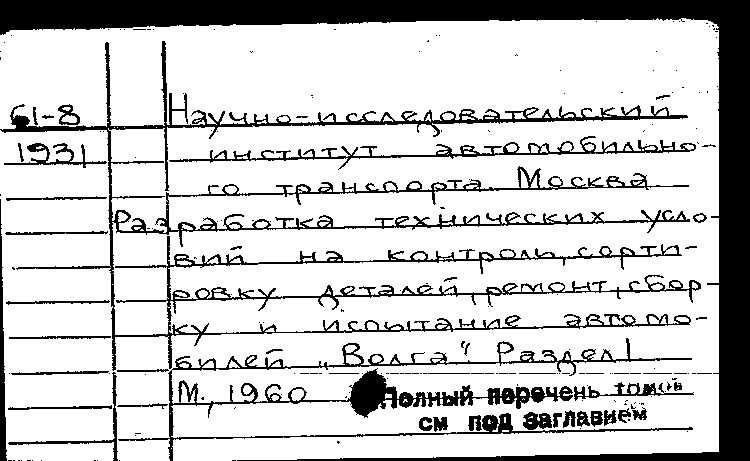 61-8 Научно-исследовательский
1931 институт автомобильно-
го транспорта. Москва
Разработка технических усло-
вий на контроль, сорти-
ровку деталей, ремонт, сбор-
ку и испытание автомо-
билей „Волга“. Раздел 1
М., 1960
Полный перечень томов
см под заглавием